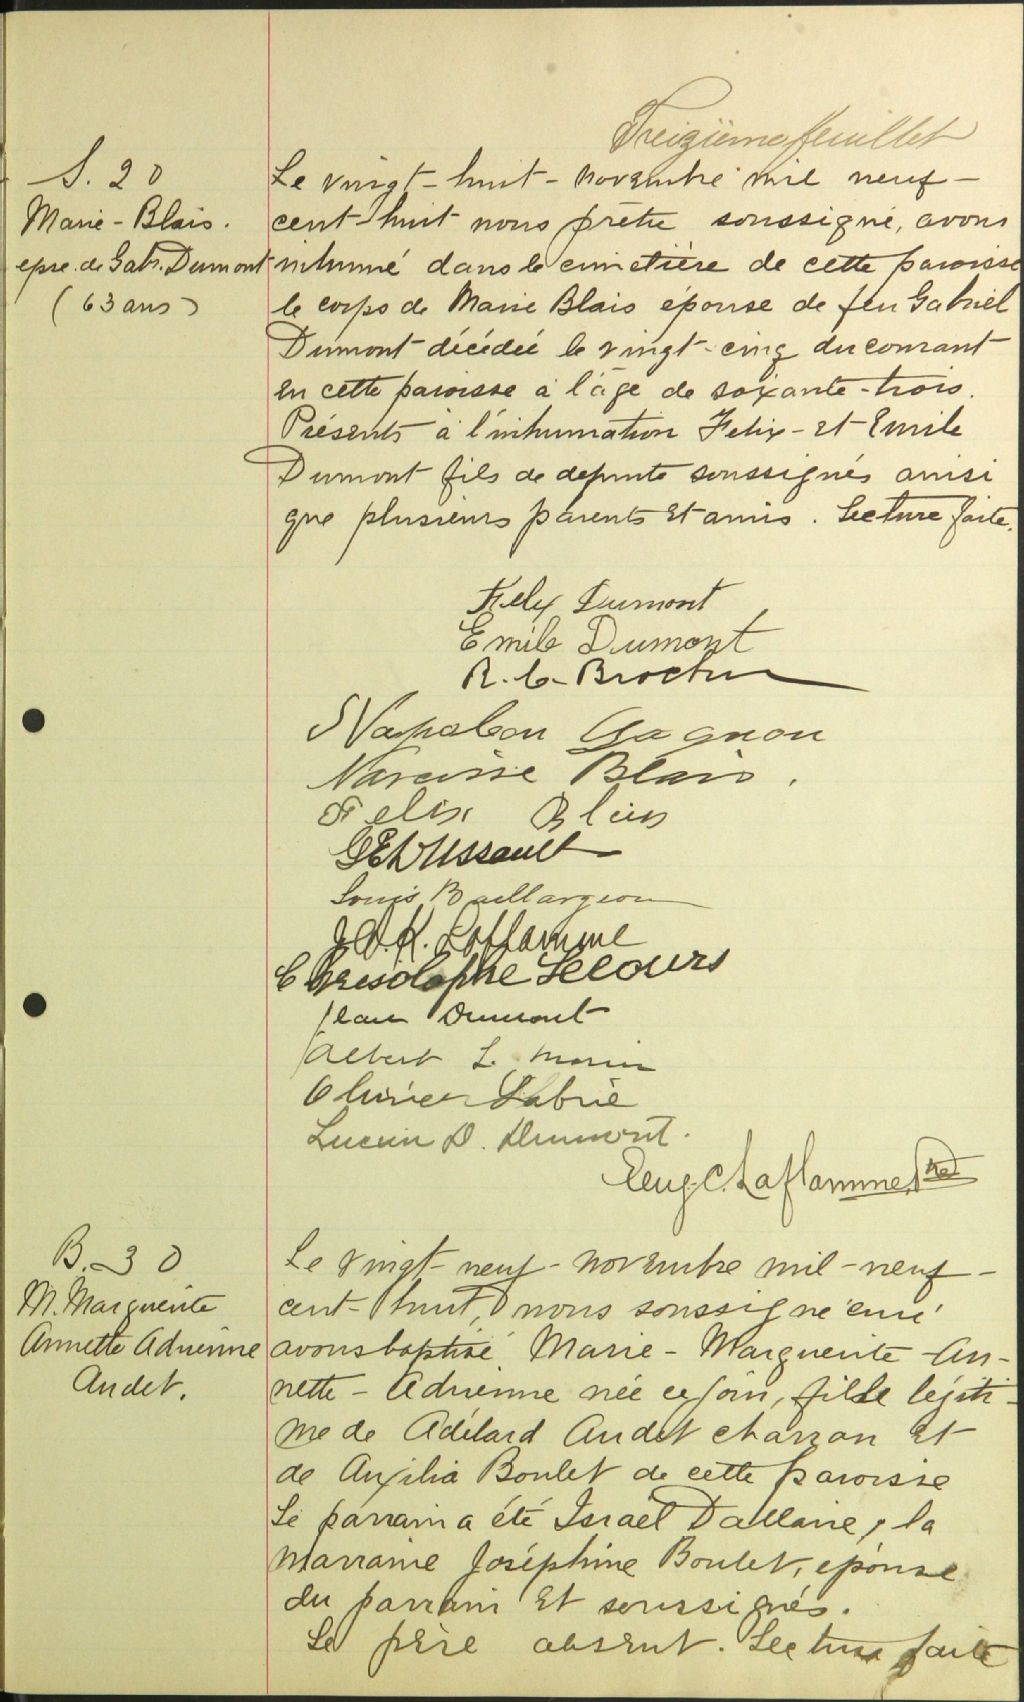 Treizième feuillet
S. 20
Marie-Blais.
epse. de Gab. Dumont
(63 ans)
Le vingt-huit-novembre mil neuf-
cent-huit nous prêtre soussigné, avons
inhumé dans le cimetière de cette paroisse
le corps de Marie Blais épouse de feu Gabriel
Dumont décédée le vingt-cinq du courant
en cette paroisse à l'âge de soixante-trois.
Présents à l'inhumation Felix-et Emile
Dumont fils de depunte soussignés ainsi
que plusieurs parents et amis. Lecture faite.
Felix Dumont
Emile Dumont
R. C. Brochu
Napoleon Gagnon
Narcisse Blais.
Felix Blais
G E Dussault
Louis Baillargeon
J. O. K. Laflamme
Chrisolophe Lecours
Jean Dumont
Albert L. Morin
Olivier Labrie
Lucien D. Dumont.
Eug. C. Laflamme, Ptre
B. 30
M. Marguerite
Annette Adrienne
Audet.
Le vingt-neuf-novembre mil-neuf-
cent-huit, nous soussigné curé
avons baptisé Marie-Marguerite-An-
nette-Adrienne née ce jour, fille légiti-
me de Adélard Audet charron et
de Auxilia Boulet de cette paroisse
Le parrain a été Israël Dallaire, la
marraine Joséphine Boulet, épouse
du parrain et soussignés.
Le père absent. Lecture faite